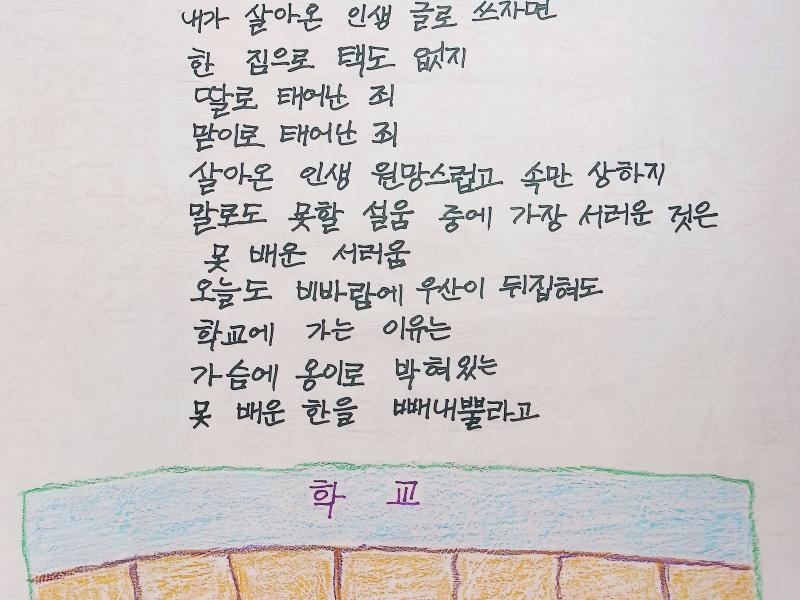 내가 살아온 인생 글로 쓰자면
한 짐으로 택도 없지
딸로 태어난 죄
맏이로 태어난 죄
살아온 인생 원망스럽고 속만 상하지
말로도 못할 설움 중에 가장 서러운 것은
못 배운 서러움
오늘도 비바람에 우산이 뒤집혀도
학교에 가는 이유는
가슴에 옹이로 박혀있는
못 배운 한을 빼내뿔라고
학 교